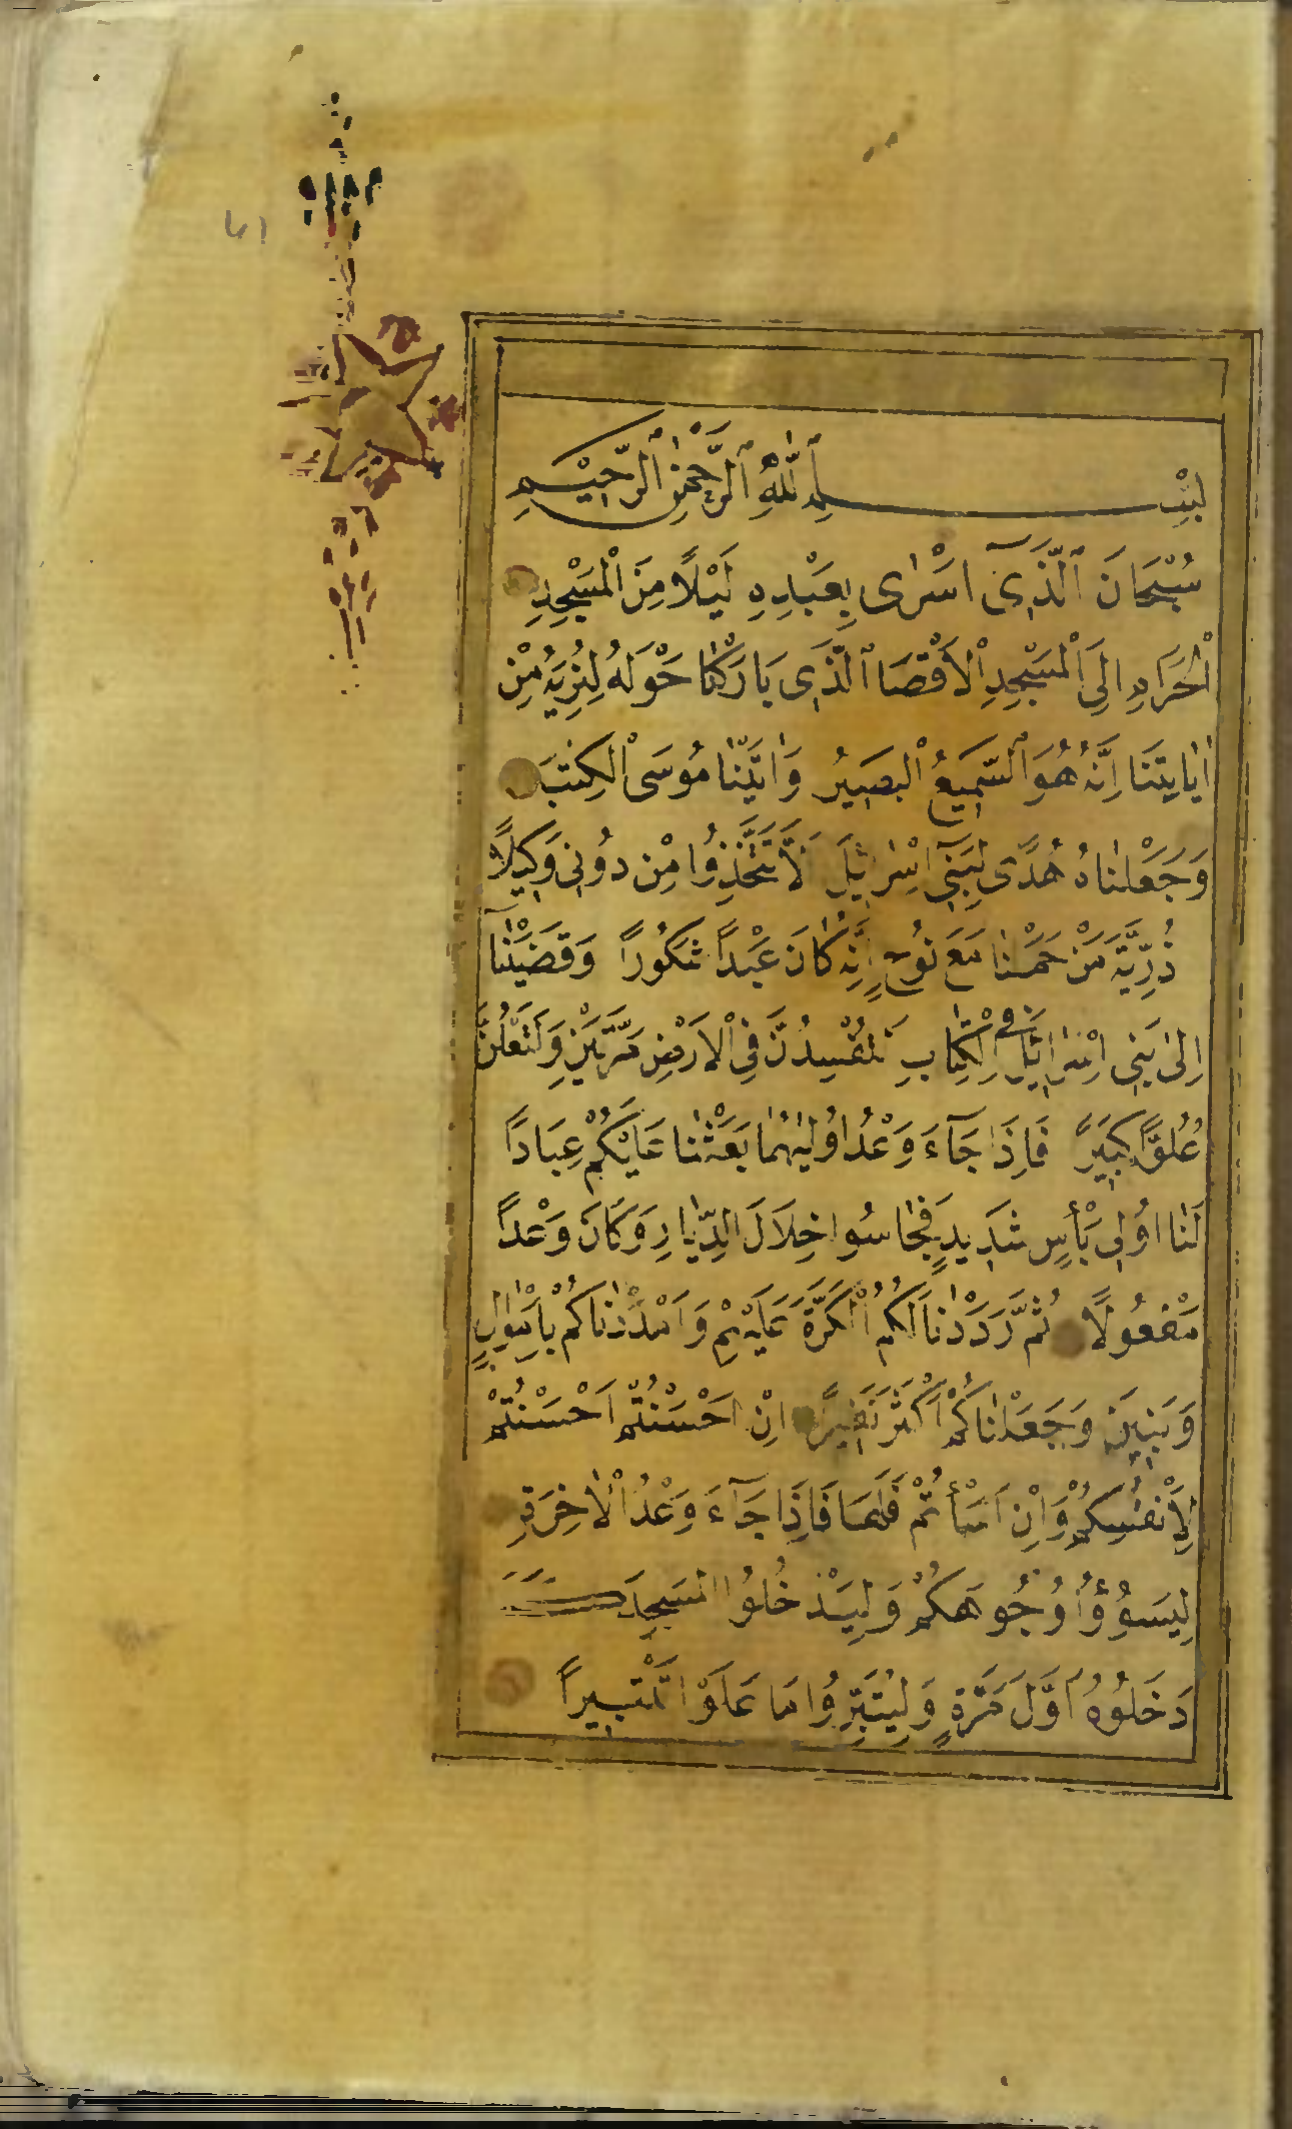 بِسْمِ ٱللّٰهِ ٱلرَّحْمٰنِ ٱلرَّحِيْمِ
سُبْحَانَ ٱلَّذِىٓ اَسْرٰى بِعَبْدِهِ لَيْلًا مِنَ ٱلْمَسْجِدِ
ٱلْحَرَامِ اِلَى ٱلْمَسْجِدِ ٱلْاَقْصَا ٱلَّذَِى بَارَكْنَا حَوْلَهُ لِنُرِيَهُ مِنْ
اٰيَاتِنَا اِنَّهُ هُوَ ٱلسَّمِيعُ ٱلْبَصِيرُ وَاٰتَيْنَا مُوسَى ٱلْكِتٰبَ
وَجَعَلْنَاهُ هُدًى لِبَنِىٓ اِسْرٰٓاِيْلَ اَلَّا تَتَّخِذُوا مِنْ دُونِى وَكِيلًا
ذُرِّيَّةَ مَنْ حَمَلْنَا مَعَ نُوحٍ اِنَّهُ كَانَ عَبْدًا شَكُورًا وَقَضَيْنَآ
اِلٰى بَنِى اِسْرَاِيْلَ فِى الْكِتَابِ لَتُفْسِدُنَّ فِى الْاَرْضِ مَرَّتَيْنِ وَلَتَعْلُنَّ
عُلُوًّا كَبِيرًا فَاِذَا جَآءَ وَعْدُ اُولٰيهُمَا بَعَثْنَا عَلَيْكُمْ عِبَادًا
لَنَا اُولِى بَأْسٍ شَدِيدٍ فَجَاسُوا خِلَالَ الدِّيَارِ وَكَانَ وَعْدًا
مَفْعُولًا ثُمَّ رَدَدْنَا لَكُمُ الْكَرَّةَ عَلَيْهِمْ وَاَمْدَدْنَاكُمْ بِاَمْوَالٍ
وَبَنِينَ وَجَعَلْنَاكُمْ اَكْثَرَ نَفِيرًا اِنْ اَحْسَنْتُمْ اَحْسَنْتُمْ
لِاَنْفُسِكُمْ وَاِنْ اَسَأْتُمْ فَلَهَا فَاِذَا جَآءَ وَعْدُ الْاٰخِرَةِ
لِيَسُوؤُا وُجُوهَكُمْ وَلِيَدْخُلُوا الْمَسْجِدَ
دَخَلُوهُ اَوَّلَ مَرَّةٍ وَلِيُتَبِّرُوا مَا عَلَوْا تَتْبِيرًا